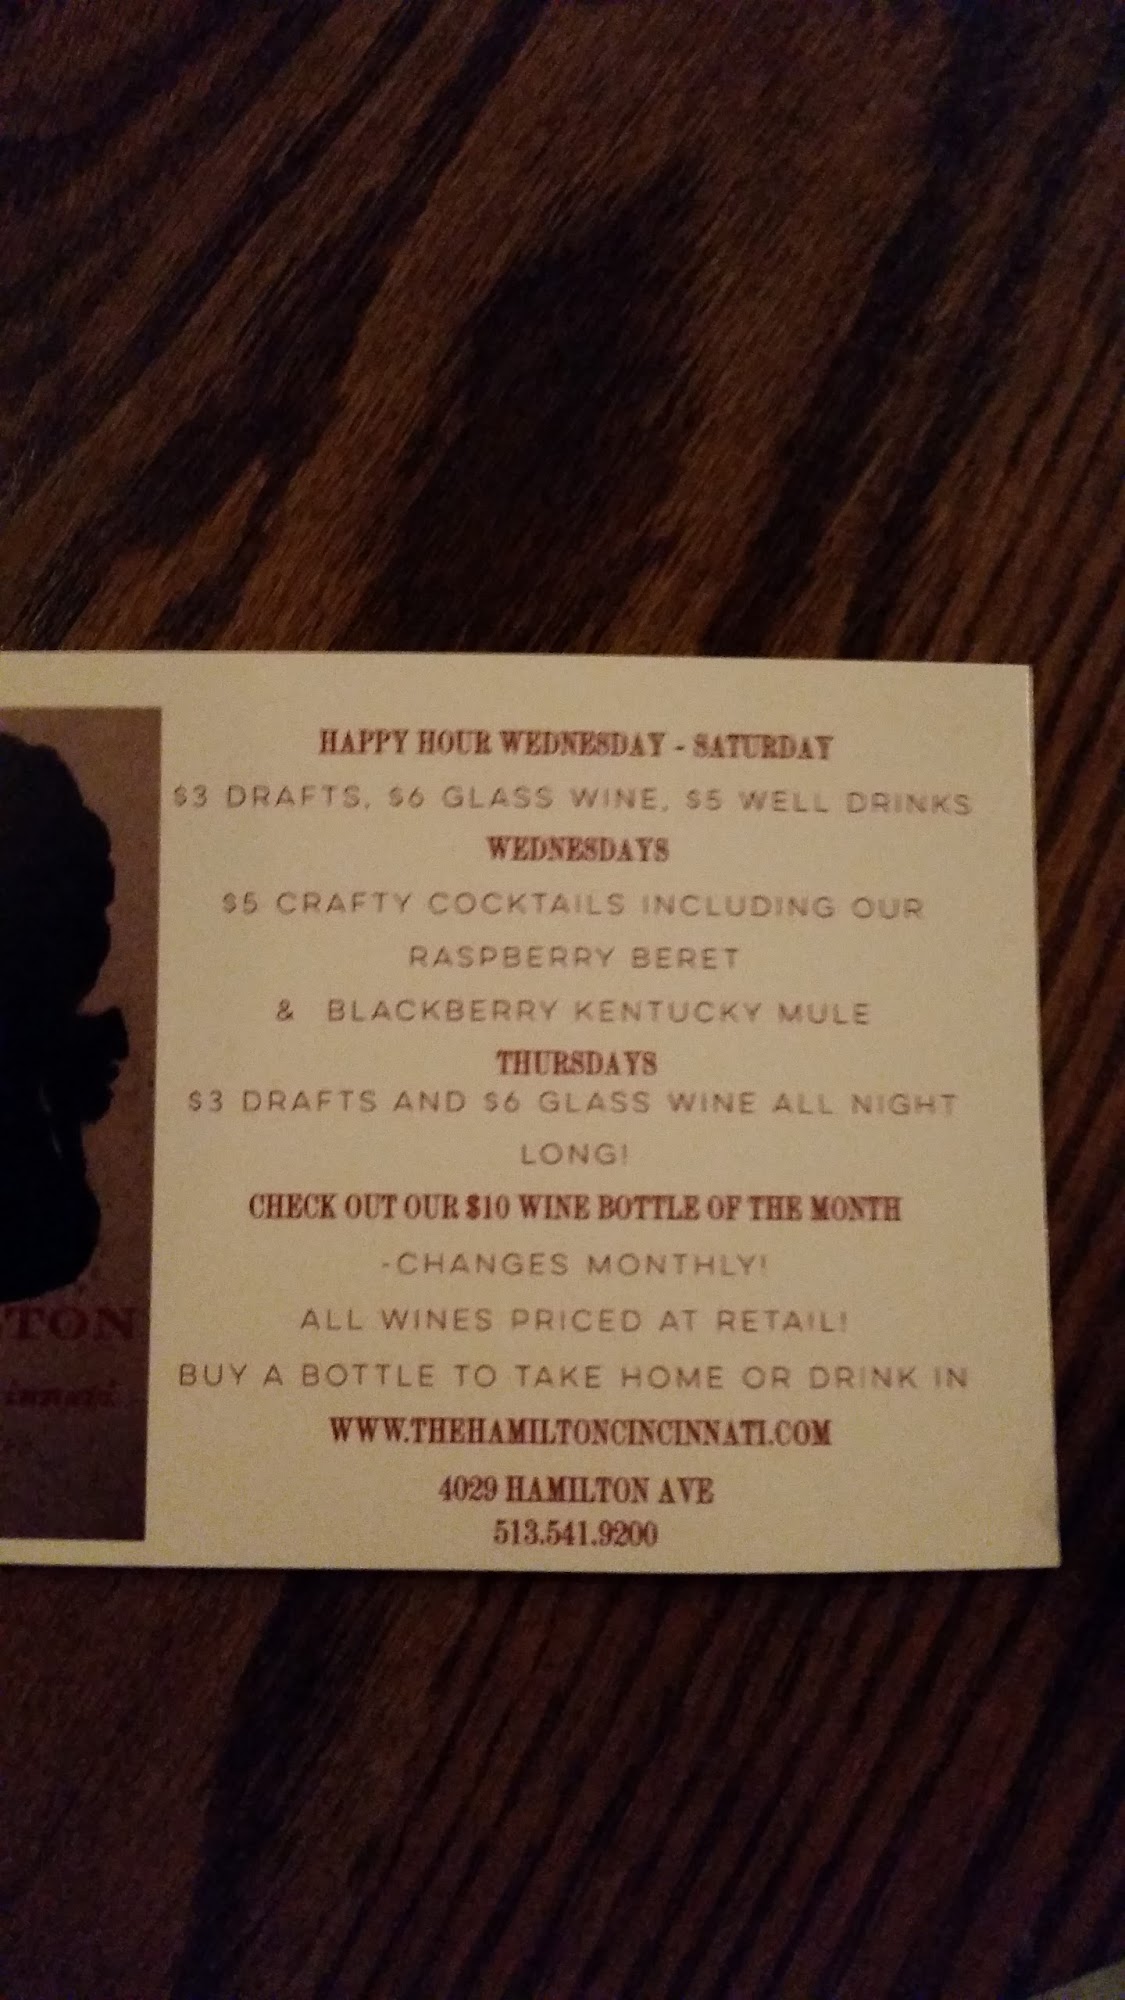 HAPPY HOUR WEDNESDAY - SATURDAY
$3 DRAFTS, $6 GLASS WINE, $5 WELL DRINKS
WEDNESDAYS
$5 CRAFTY COCKTAILS INCLUDING OUR
RASPBERRY BERET
& BLACKBERRY KENTUCKY MULE
THURSDAYS
$3 DRAFTS AND $6 GLASS WINE ALL NIGHT
LONG!
CHECK OUT OUR $10 WINE BOTTLE OF THE MONTH
-CHANGES MONTHLY!
ALL WINES PRICED AT RETAIL!
BUY A BOTTLE TO TAKE HOME OR DRINK IN
WWW.THEHAMILTONCINCINNATI.COM
4029 HAMILTON AVE
513.541.9200
TON